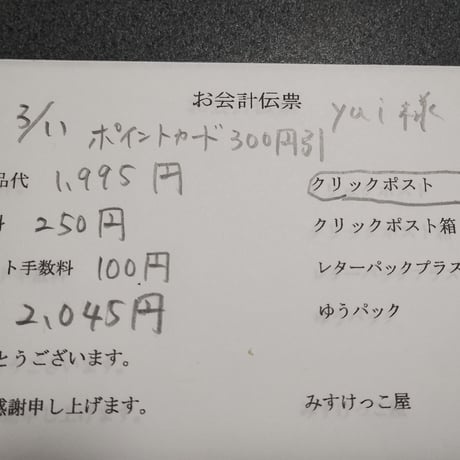 お会計伝票
3/11 yui様
ポイントカード300円引
品代 1,995円 クリックポスト
250円 クリックポスト箱
ト手数料 100円 レタープラックプラス
2,045円 ゆうパック
とうございます。
感謝申し上げます。 みすけっこ屋